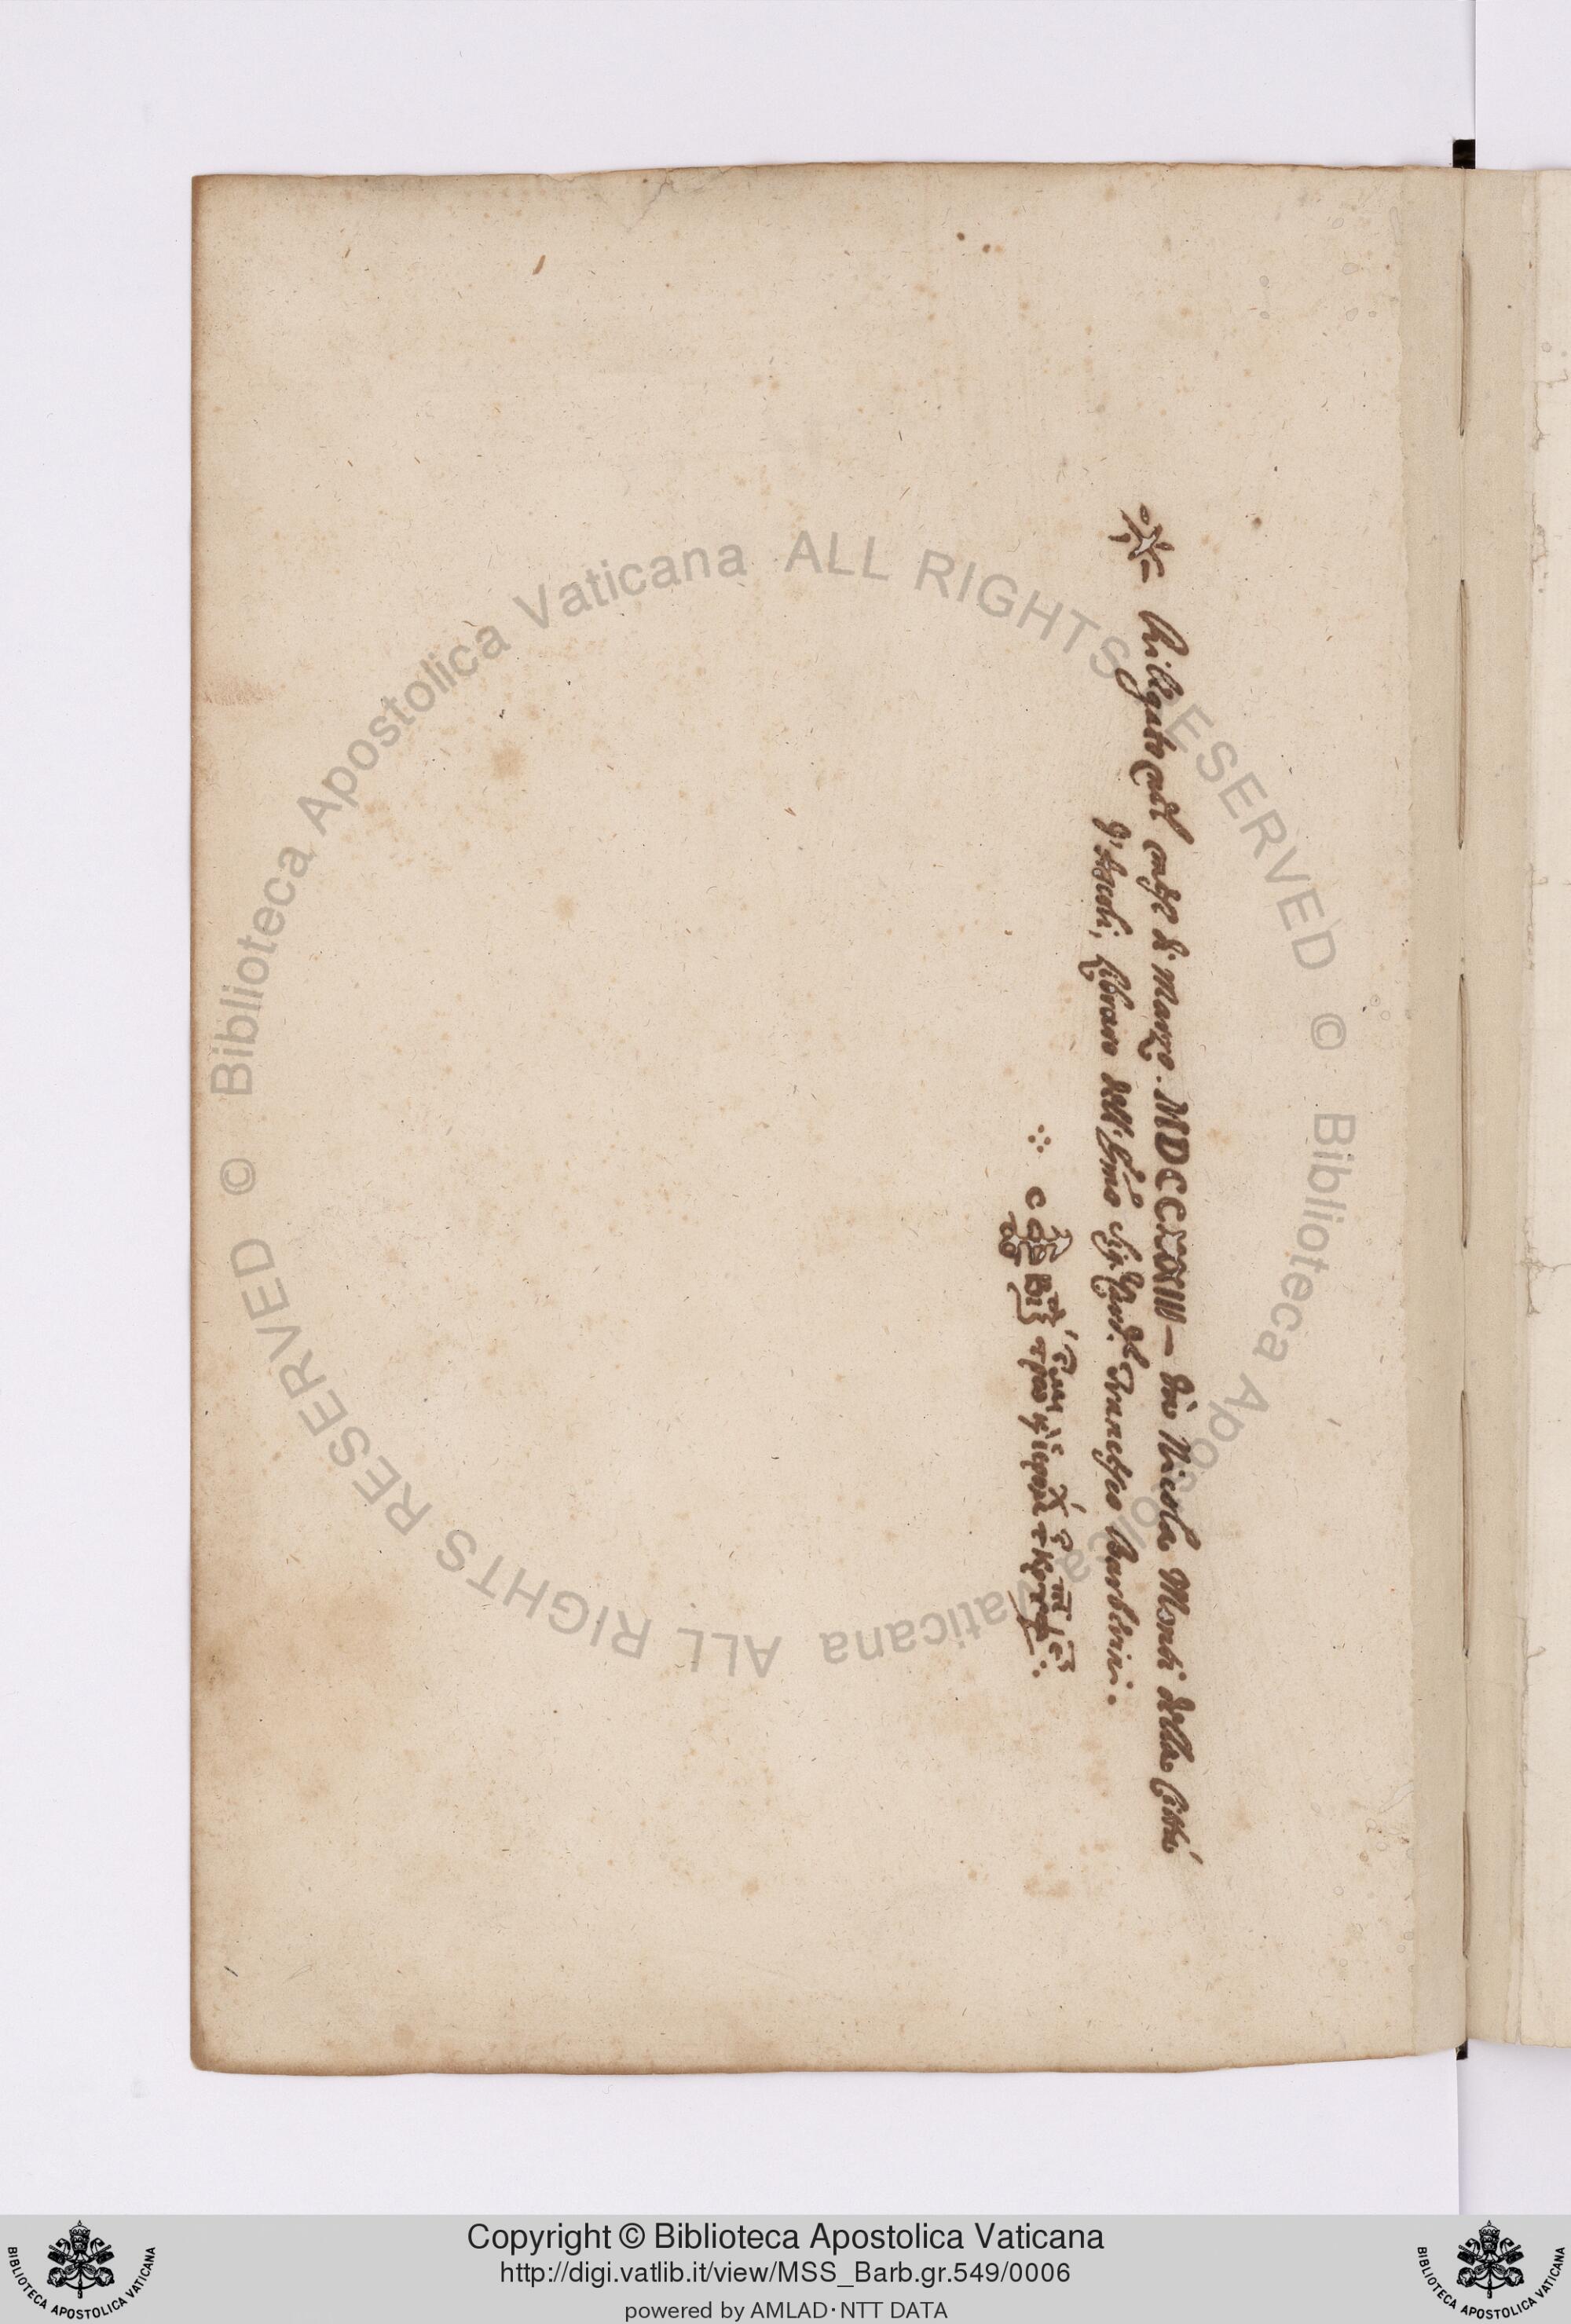 Riligato nel mese di Marzo. MDCCXXIII – da Nicola Monti della Città
d'Ascoli, libraro dell'Emo Sig. Card. Francesco Barberini.
© Biblioteca Apostolica Vaticana ALL RIGHTS RESERVED © Biblioteca Apostolica Vaticana ALL RIGHTS RESERVED
Copyright © Biblioteca Apostolica Vaticana
http://digi.vatlib.it/view/MSS_Barb.gr.549/0006
powered by AMLAD·NTT DATA
BIBLIOTECA APOSTOLICA VATICANA
BIBLIOTECA APOSTOLICA VATICANA